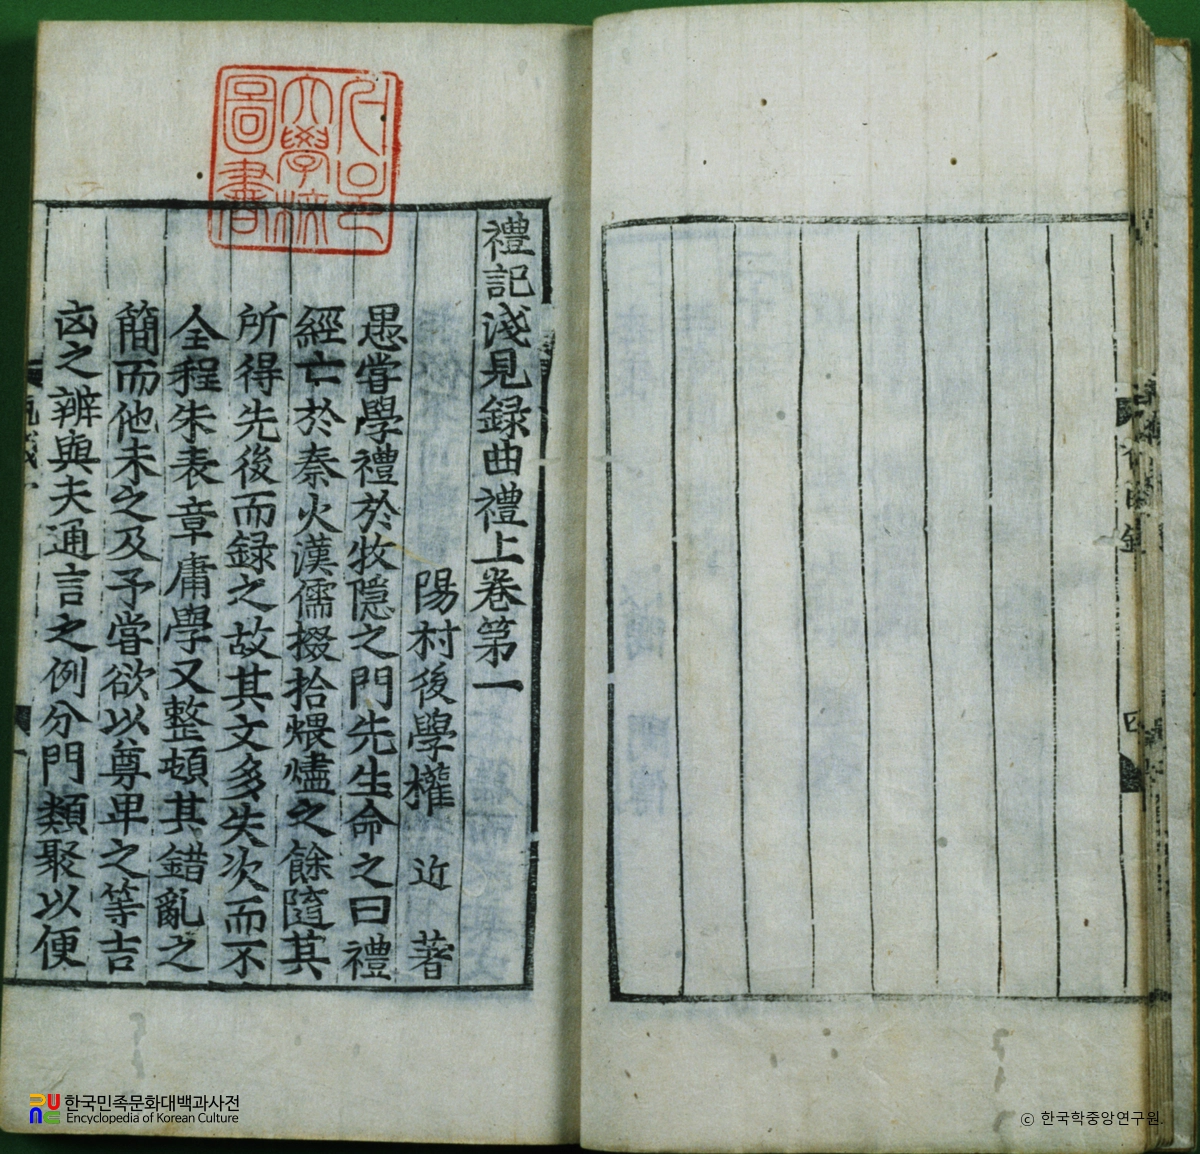 서울
大學校
圖書
禮記淺見録曲禮上卷第一
陽村後學權 近 著
愚嘗學禮於牧隱之門先生命之曰禮
經亡於秦火漢儒掇拾煨燼之餘隨其
所得先後而録之故其文多失次而不
全程朱表章庸學又整頓其錯亂之
簡而他未之及予嘗欲以尊卑之等吉
凶之辨與夫通言之例分門類聚以便
四
한국민족문화대백과사전
Encyclopedia of Korean Culture
ⓒ 한국학중앙연구원